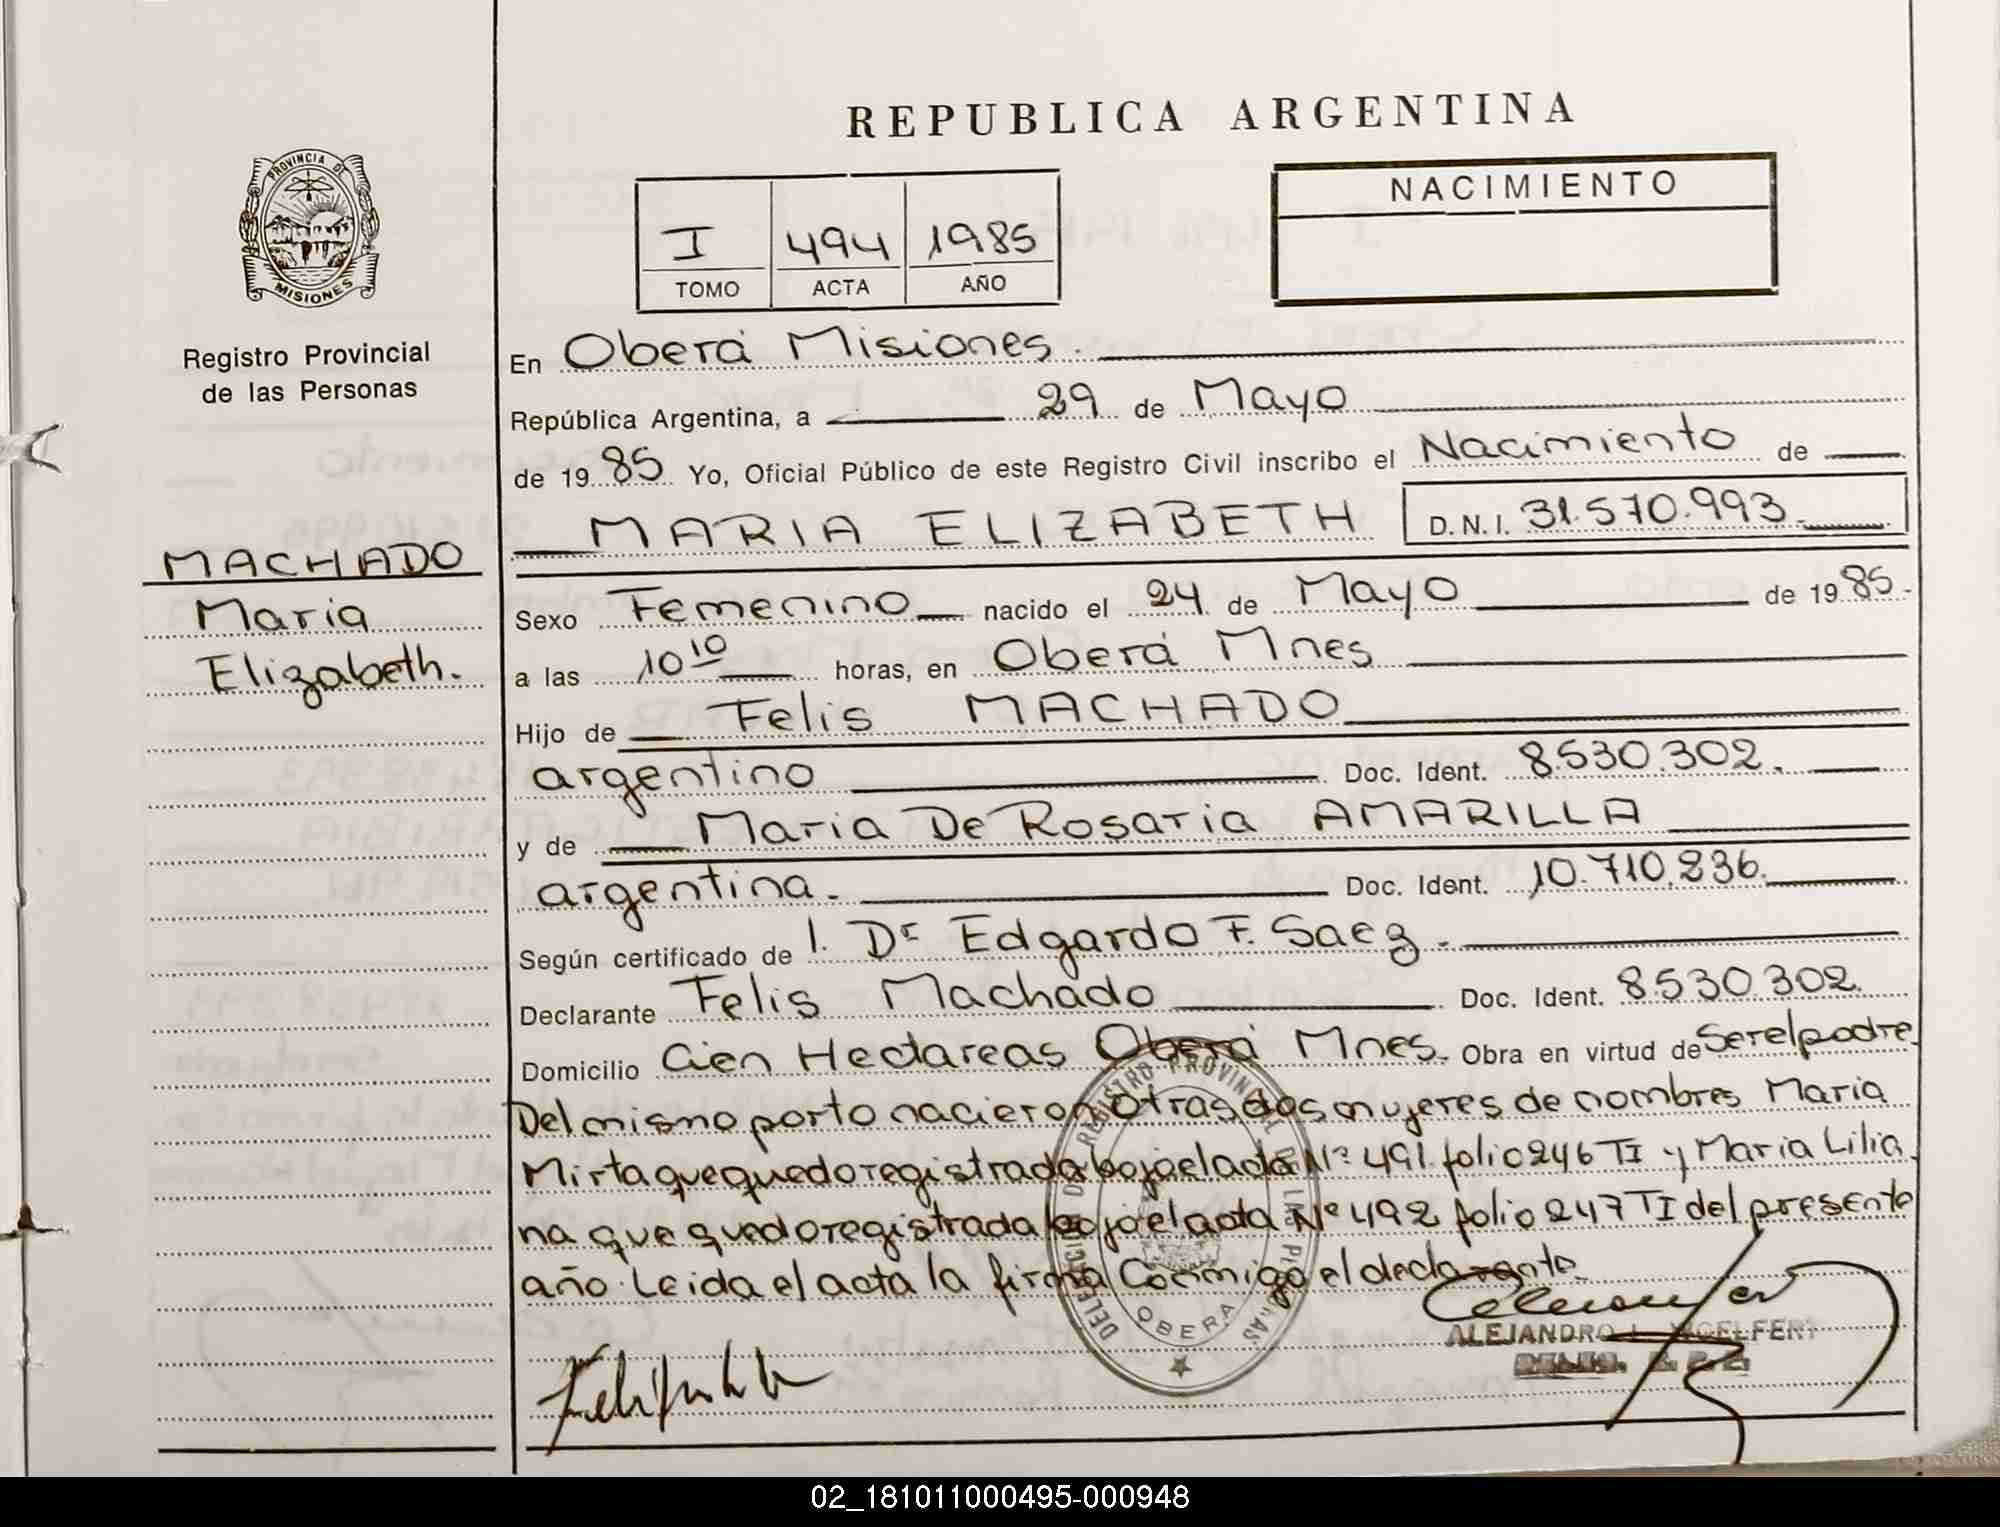 REPUBLICA ARGENTINA
PROVINCIA DE
MISIONES
Registro Provincial
de las Personas
I 494 1985
TOMO ACTA AÑO
NACIMIENTO
En Oberá Misiones.
República Argentina, a 29 de Mayo
de 1985 Yo, Oficial Público de este Registro Civil inscribo el Nacimiento de
MARIA ELIZABETH D.N.I. 31.570.993.
MACHADO
Maria
Elizabeth.
Sexo Femenino nacido el 24 de Mayo de 1985.
a las 10 10 horas, en Oberá Mnes
Hijo de Felis MACHADO
argentino Doc. Ident. 8.530.302.
y de Maria De Rosaria AMARILLA
argentina. Doc. Ident. 10.710.236.
Según certificado de 1. Dr Edgardo F. Saez.
Declarante Felis Machado Doc. Ident. 8.530.302.
Domicilio Cien Hectareas Oberá Mnes. Obra en virtud de Ser el padre.
Del mismo parto nacieron otras dos mujeres de nombres Maria
Mirta que quedo registrada bajo el acta Nº 491 folio 246 TI y Maria Lilia
na que quedo registrada bajo el acta Nº 492 folio 247 TI del presente
año. Leida el acta la firma Conmigo el declarante.
DELEGACION DE REGISTRO PROVINCIAL DE LAS PERSONAS
OBERA
ALEJANDRO
02_181011000495-000948